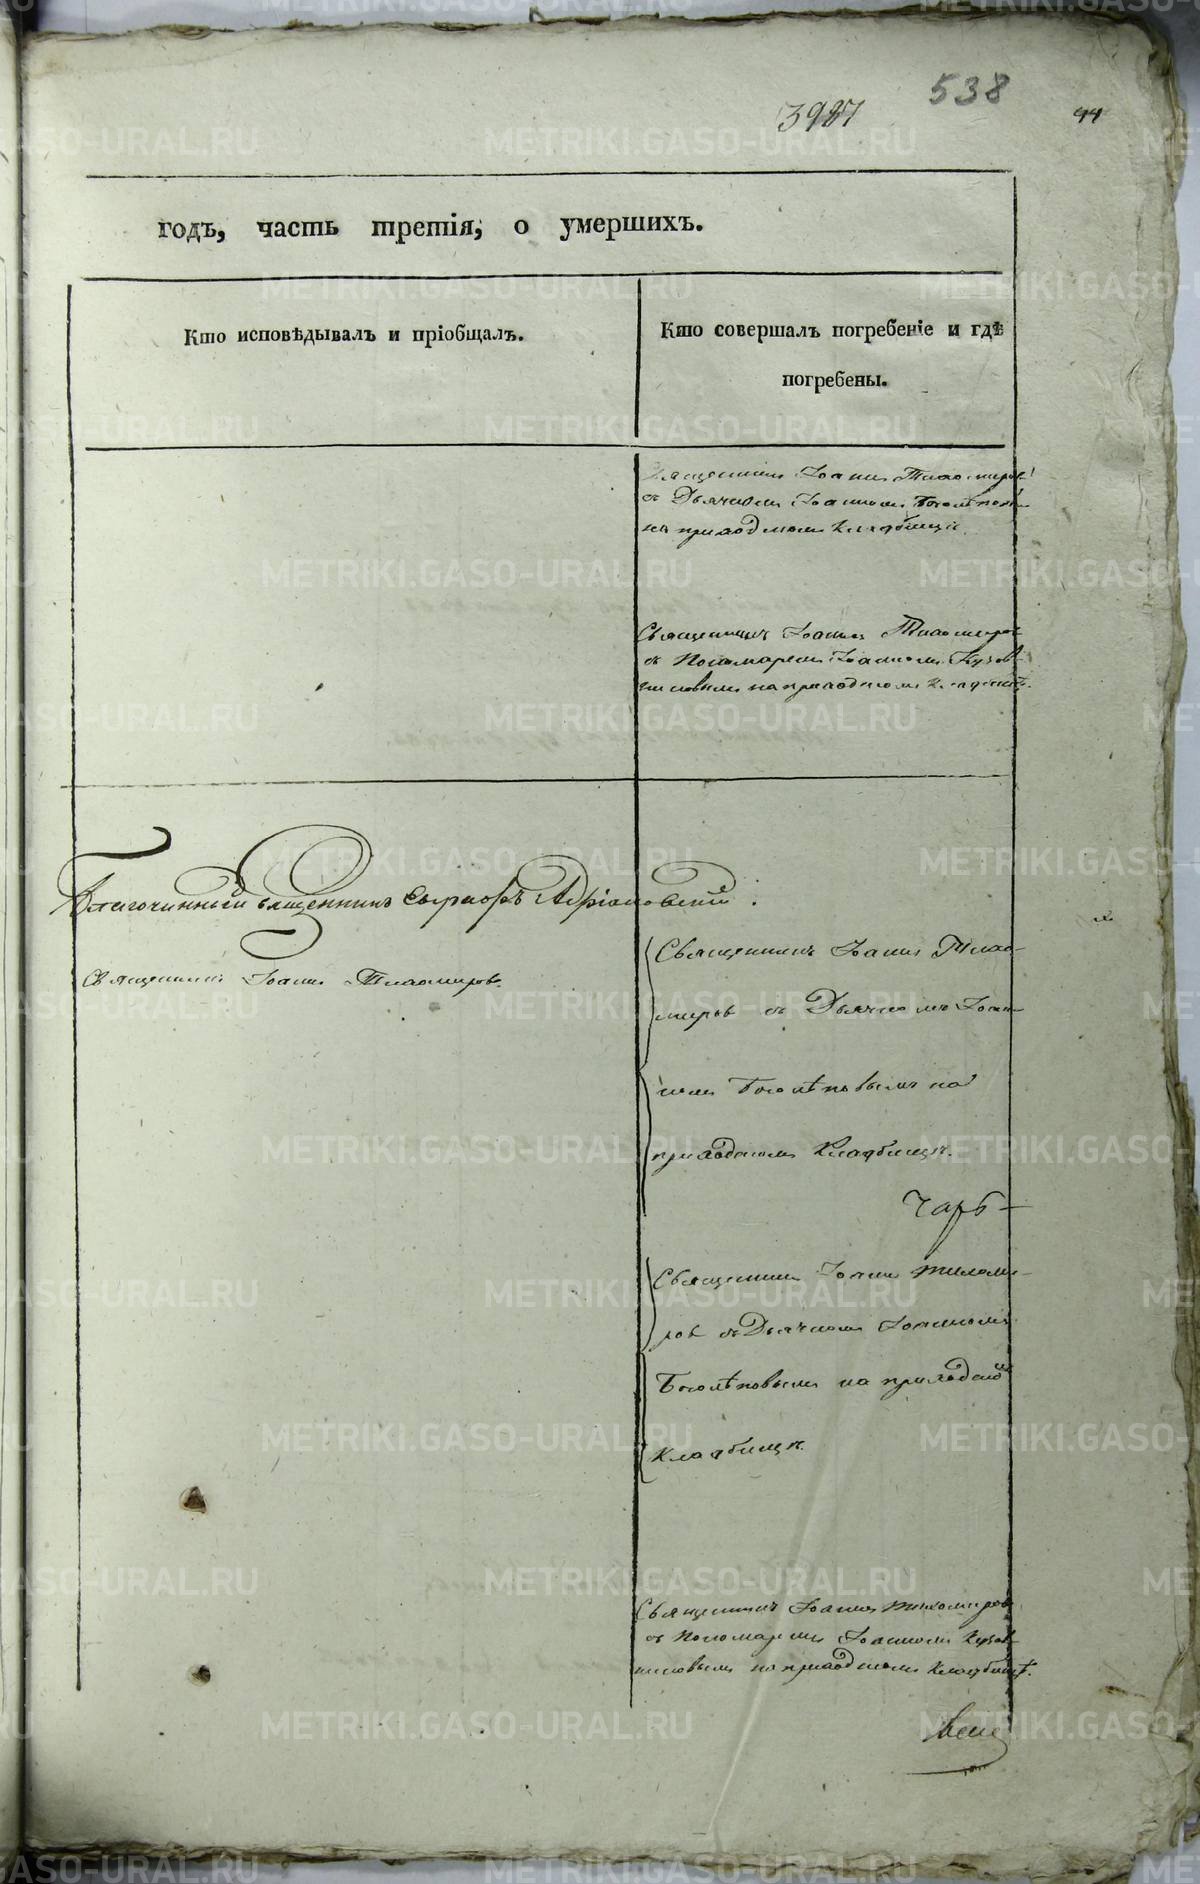 538
3987
44
годъ, часть третія, о умершихъ.
Кто исповѣдывалъ и пріобщалъ.
Кто совершалъ погребеніе и гдѣ
погребены.
Священникъ Іоаннъ Тихомиров
съ Дьячкомъ Іоанномъ Боголѣповы
на приходскомъ Кладбищѣ.
Священникъ Іоаннъ Тихомиров
съ Пономаремъ Іоанномъ
на приходскомъ Кладбищѣ.
Благочинный Священникъ
Священникъ Іоаннъ Тихомировъ.
Священникъ Іоаннъ Тихо-
мировъ съ Дьячкомъ Іоан-
номъ Боголѣповымъ на
приходскомъ Кладбищѣ.
Священникъ Іоаннъ Тихоми-
ровъ съ Дьячкомъ Іоанномъ
Боголѣповымъ на приходском
Кладбищѣ.
Священникъ Іоаннъ Тихомировъ
съ Пономаремъ Іоанномъ
на приходскомъ Кладбищѣ.
METRIKI.GASO-URAL.RU